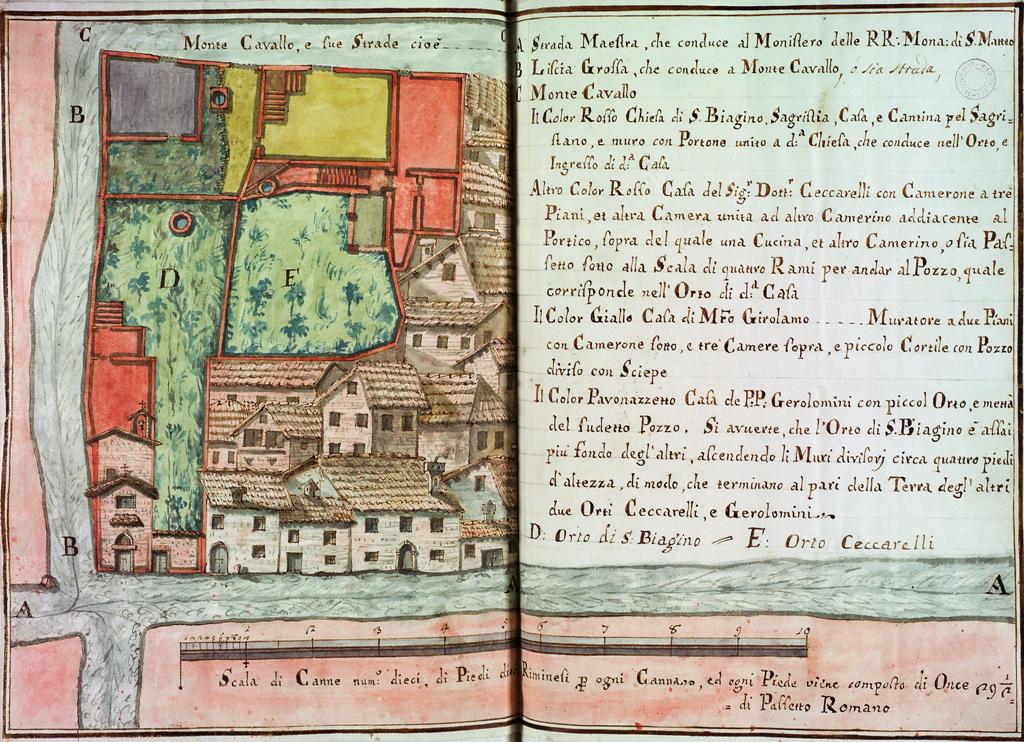 C
Monte Cavallo, e sue Strade cioè
C
B
D
E
B
A
A
A
A Strada Maestra, che conduce al Monistero delle RR: Mona: di S. Matteo
B Liscia Grossa, che conduce a Monte Cavallo, o sia strada,
C Monte Cavallo
Il Color Rosso Chiesa di S. Biagino, Sagristia, Casa, e Cantina pel Sagri=
stano, e muro con Portone unito a d.ª Chiesa, che conduce nell'Orto, e
Ingresso di d.ª Casa
Altro Color Rosso Casa del Sig.r Dott.r Ceccarelli con Camerone a tre
Piani, et altra Camera unita ad altro Camerino addiacente al
Portico, sopra del quale una Cucina, et altro Camerino, o sia Pas=
setto sotto alla Scala di quattro Rami per andar al Pozzo, quale
corrisponde nell'Orto di d.ª Casa
Il Color Giallo Casa di Mro Girolamo ..... Muratore a due Piani
con Camerone sotto, e tre Camere sopra, e piccolo Cortile con Pozzo
diviso con Sciepe
Il Color Pavonazzetto Casa de P.P: Gerolomini con piccol Orto, e metà
del sudetto Pozzo. Si avverte, che l'Orto di S. Biagino è assai
più fondo degl'altri, ascendendo li Muri divisorj circa quattro piedi
d'altezza, di modo, che terminano al pari della Terra degl'altri
due Orti Ceccarelli, e Gerolomini
D: Orto di S. Biagino = E: Orto Ceccarelli
1 2 3 4 5 6 7 8 9 10
2 3 4 5 6 7 8 9 10
Scala di Canne num.º dieci, di Piedi dieci Riminesi p ogni Canna, ed ogni Piede viene composto di Once 29 1/2
= di Passetto Romano